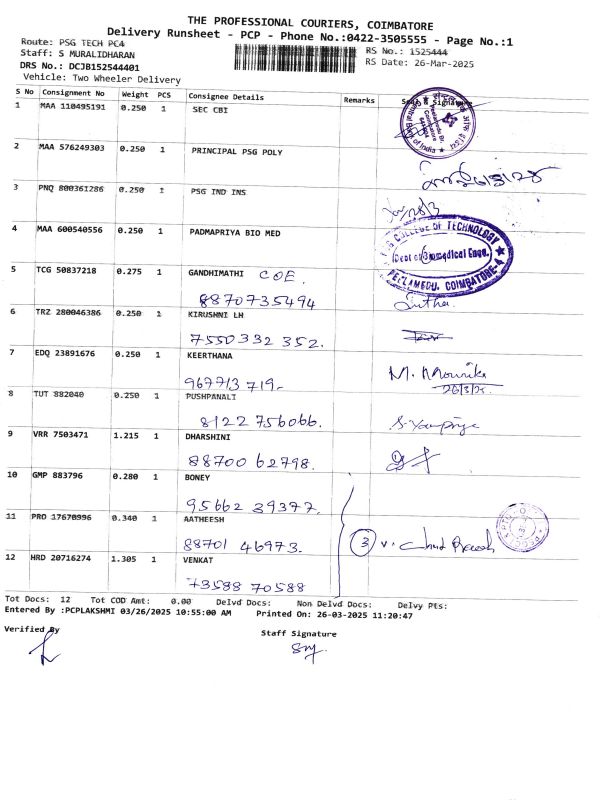 THE PROFESSIONAL COURIERS, COIMBATORE
Delivery Runsheet - PCP - Phone No.:0422-3505555 - Page No.:1
Route: PSG TECH PC4
Staff: S MURALIDHARAN
RS No.: 1525444
DRS No.: DCJB152544401
RS Date: 26-Mar-2025
Vehicle: Two Wheeler Delivery
S No Consignment No Weight PCS Consignee Details Remarks Seal & Signature
1 MAA 110495191 0.250 1 SEC CBI
2 MAA 576249303 0.250 1 PRINCIPAL PSG POLY
3 PNQ 800361286 0.250 1 PSG IND INS
4 MAA 600540556 0.250 1 PADMAPRIYA BIO MED
PSG COLLEGE OF TECHNOLOGY
Dept of Biomedical Engg.
PEELAMEDU, COIMBATORE-4
5 TCG 50837218 0.275 1 GANDHIMATHI COE.
8870735494
Sutha
6 TRZ 280046386 0.250 1 KIRUSHNI LH
7550332 352.
7 EDQ 23891676 0.250 1 KEERTHANA
967713 719-
M. Mounika
26/3/25.
8 TUT 882040 0.250 1 PUSHPANALI
8122 756066.
9 VRR 7503471 1.215 1 DHARSHINI
88700 62798.
10 GMP 883796 0.280 1 BONEY
95662 39377.
11 PRO 17670996 0.340 1 AATHEESH
88701 46973.
3 V.
12 HRD 20716274 1.305 1 VENKAT
73588 70588
Tot Docs: 12 Tot COD Amt: 0.00 Delvd Docs: Non Delvd Docs: Delvy Pts:
Entered By :PCPLAKSHMI 03/26/2025 10:55:00 AM Printed On: 26-03-2025 11:20:47
Verified By
Staff Signature